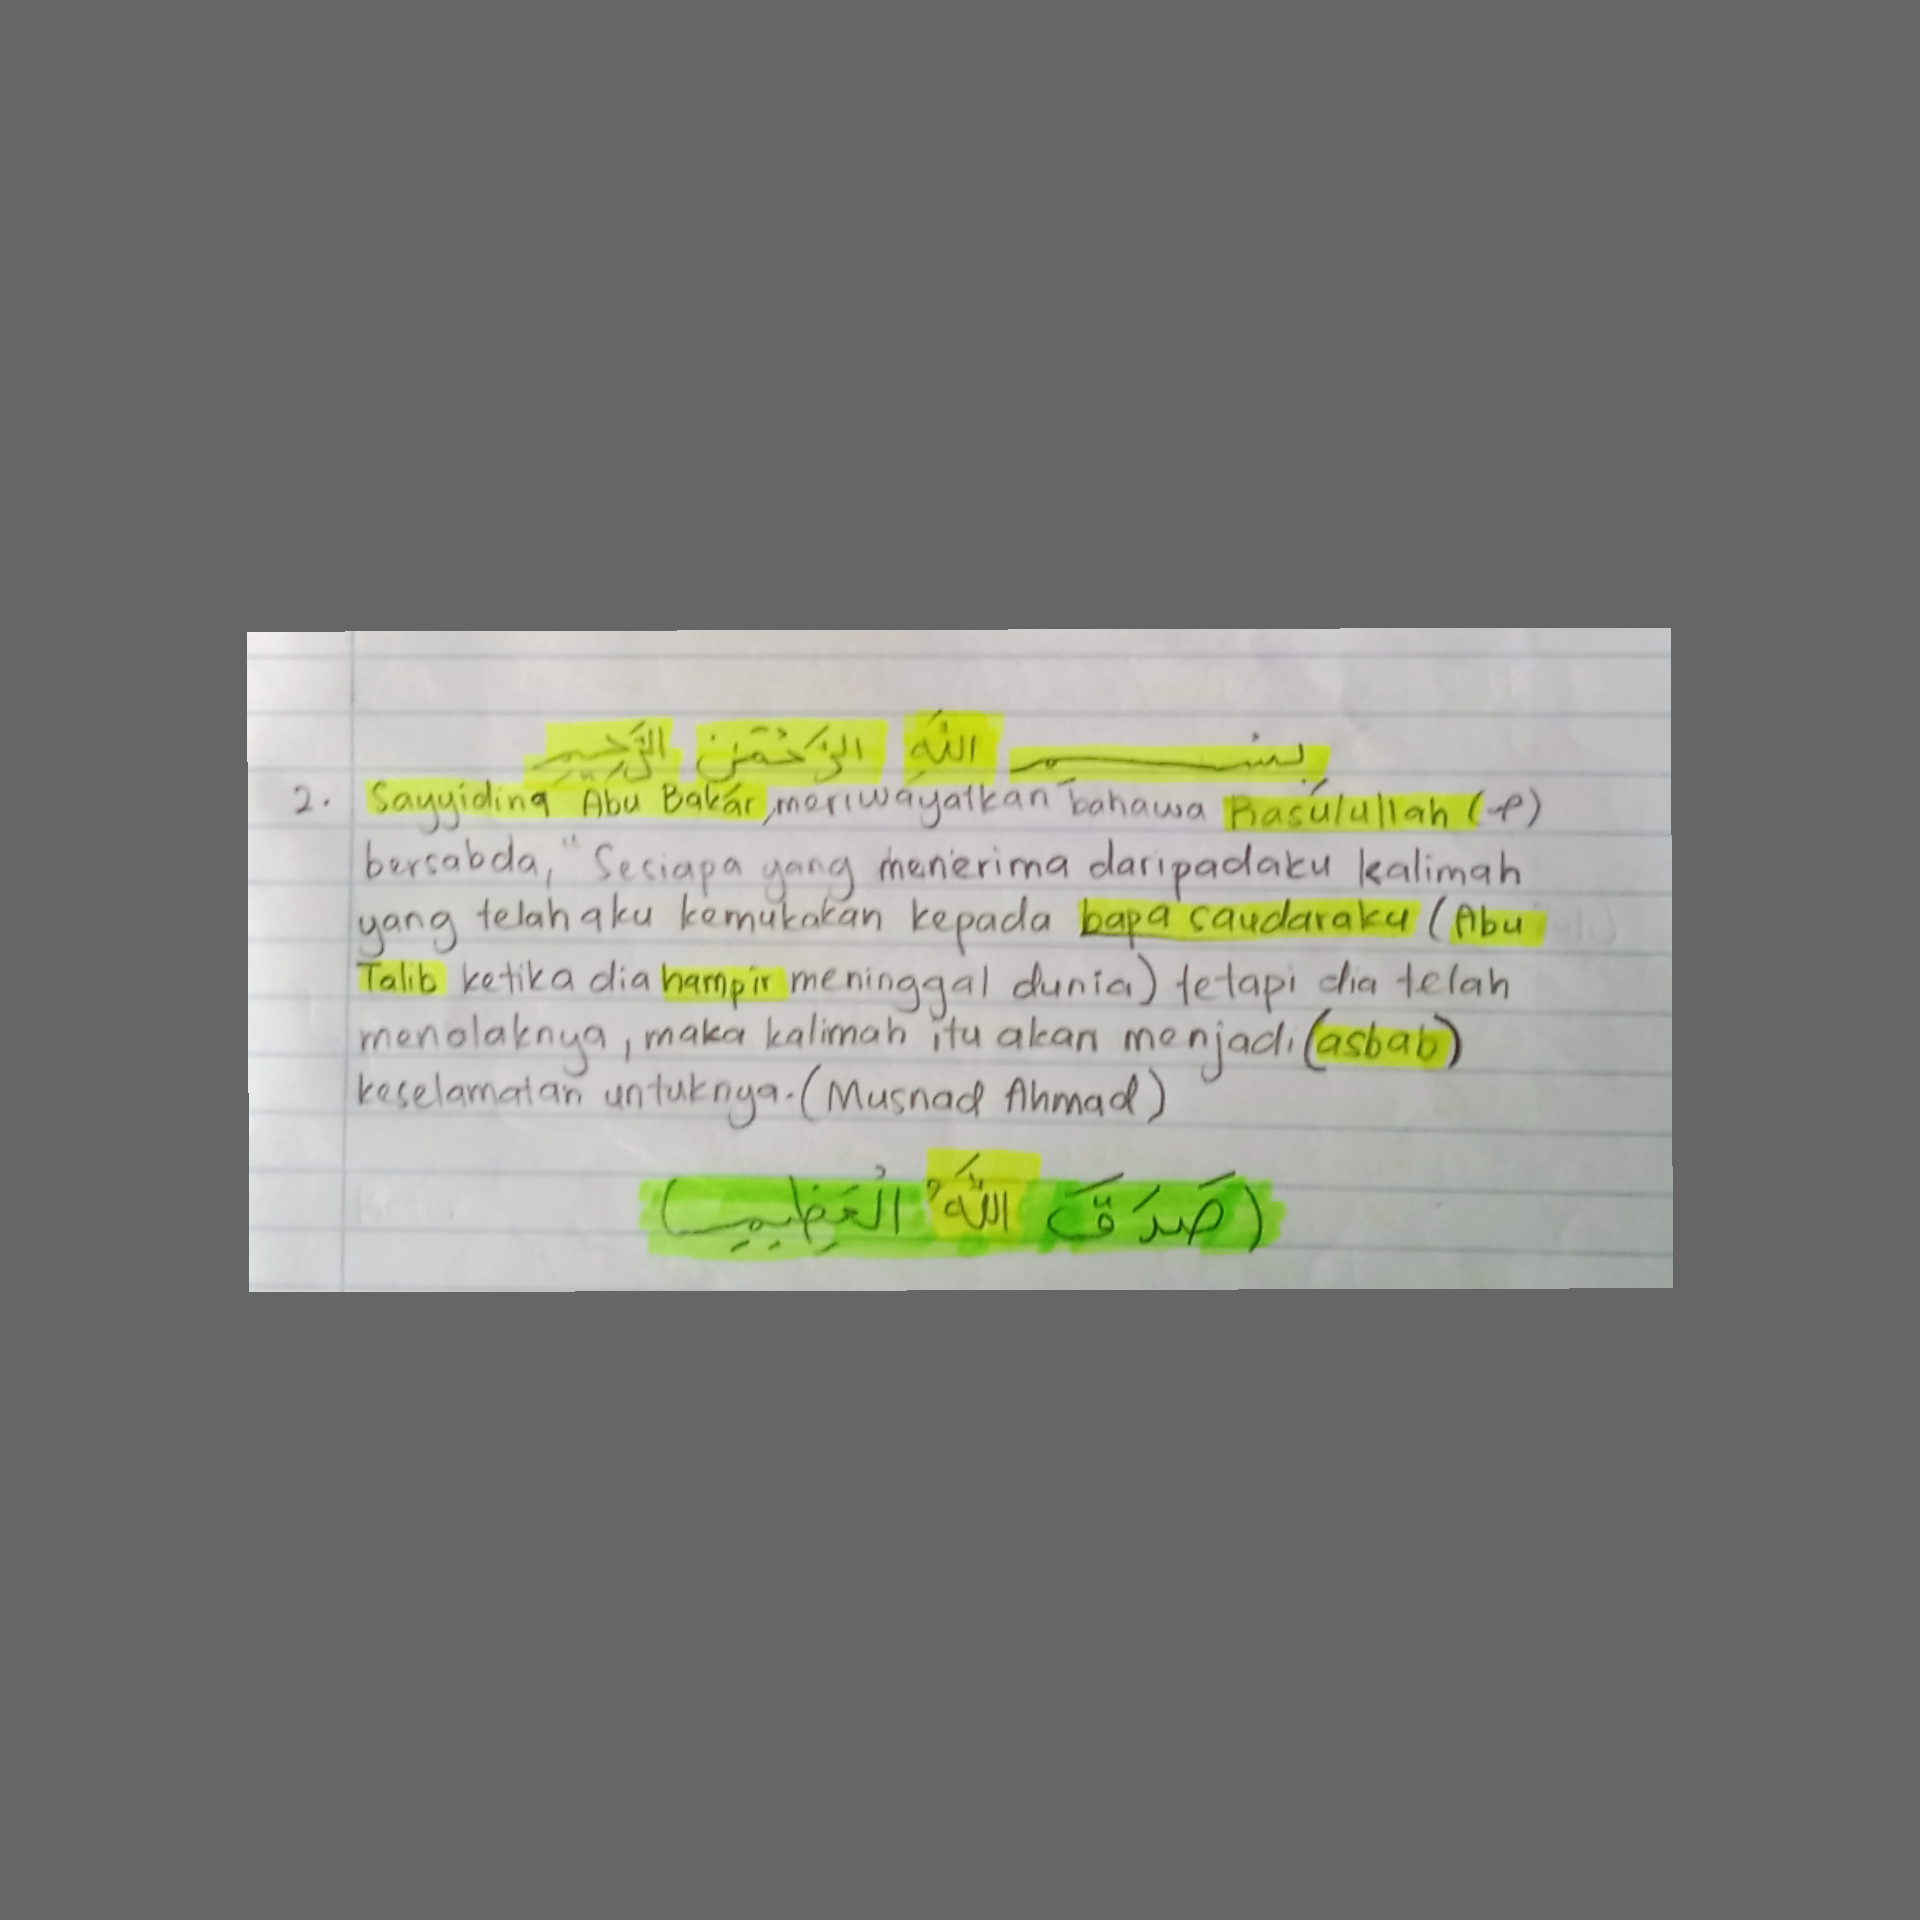 بِسْمِ اللهِ الرَّحْمَنِ الرَّحِيمِ
2. Sayyidina Abu Bakar, meriwayatkan bahawa Rasulullah
bersabda, "Sesiapa yang menerima daripadaku kalimah
yang telah aku kemukakan kepada bapa saudaraku (Abu
Talib ketika dia hampir meninggal dunia) tetapi dia telah
menolaknya, maka kalimah itu akan menjadi (asbab)
keselamatan untuknya. (Musnad Ahmad)
(صَدَقَ اللهُ الْعَظِيمِ)